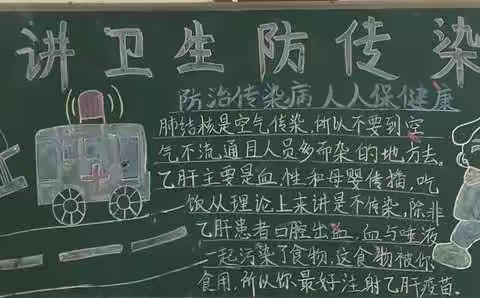 讲卫生防传染
防治传染病人人保健康
肺结核是空气传染,所以不要到空
气不流通且人员多而杂的地方去。
乙肝主要是血、性和母婴传播,吃
饭从理论上来讲是不传染,除非
乙肝患者口腔出血,血与唾液
一起污染了食物,这食物被你
食用,所以你最好注射乙肝疫苗。